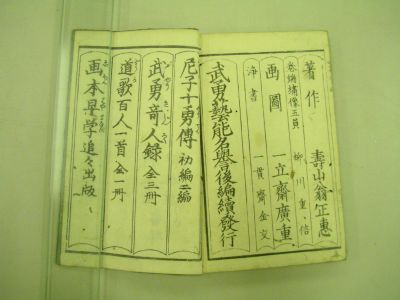 著作 壽山翁正惠
卷端繍像五員 柳川重信
画圖 一立齋廣重
浄書 一貫齋金交
武勇藝能名譽後編續發行
尼子十勇傳 初編二編
武勇竒人録 全三冊
道歌百人一首 全一冊
画本早学 追々出版